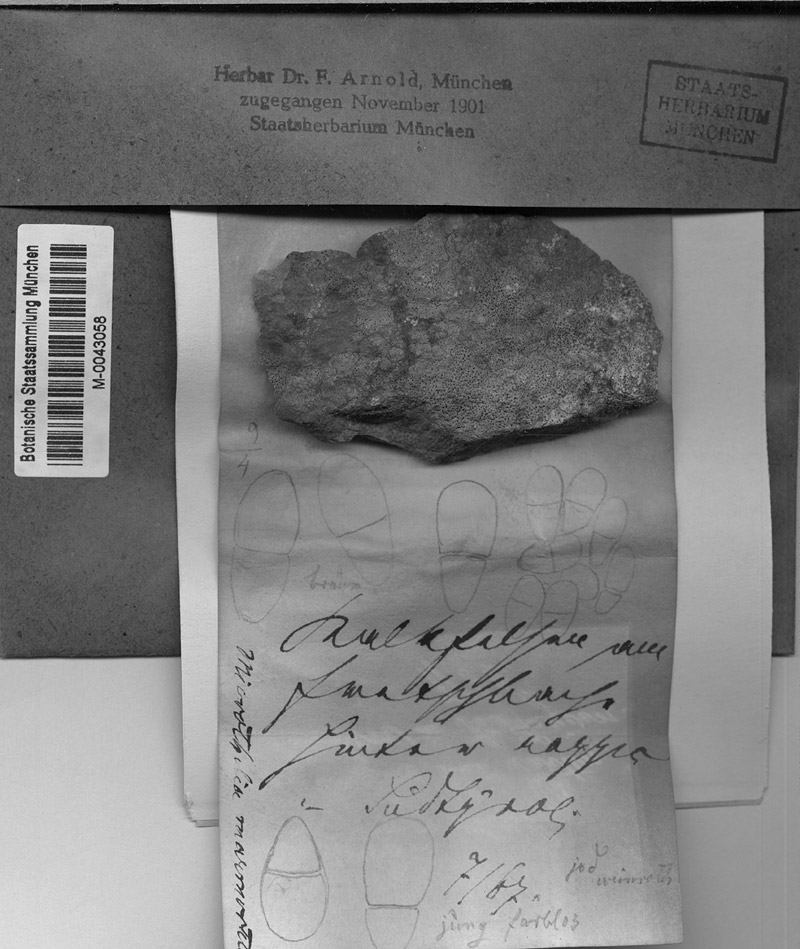 Herbar Dr. F. Arnold, München
zugegangen November 1901
Staatsherbarium München
STAATS-
HERBARIUM
MÜNCHEN
Botanische Staatssammlung München
M-0043058
9/4
braun
Kalkfelsen am
hinter
in Südtyrol.
7/67.
jod
weinroth
jung farblos